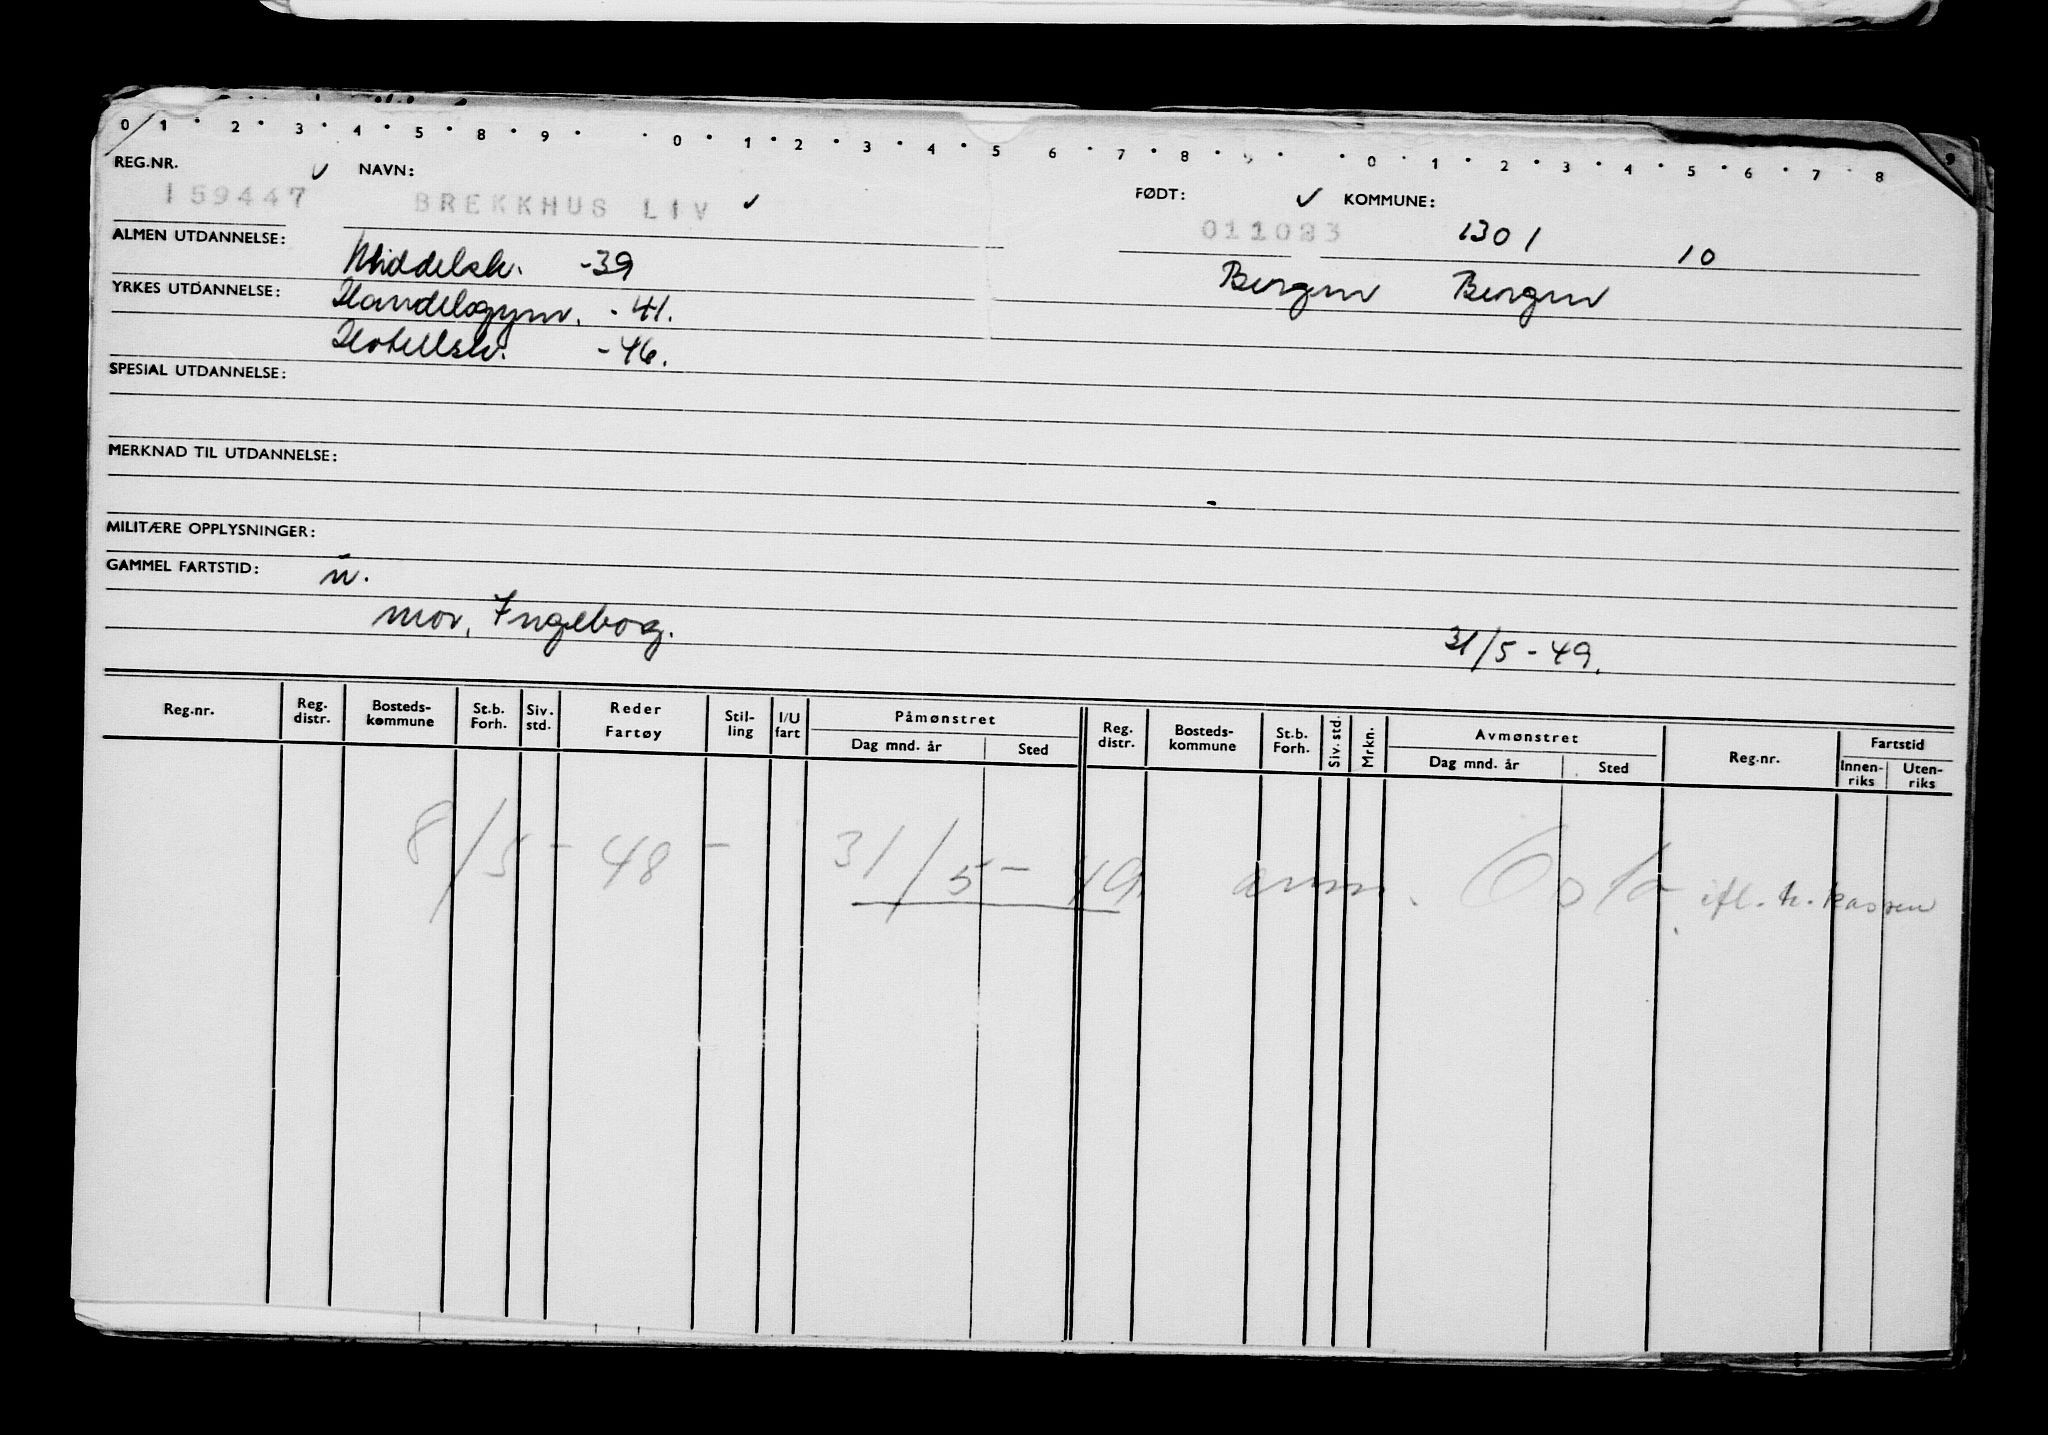 0 1 2 3 4 5 8 9 0 1 2 3 4 5 6 7 8 9 0 1 2 3 4 5 6 7 8 9
REG.NR. NAVN: FØDT: KOMMUNE:
159447 BREKKHUS LIV 011023 1301 10
ALMEN UTDANNELSE: Middelsk. -39 Bergen Bergen
YRKES UTDANNELSE: Handelsgym. -41.
Hotellsk. -46.
SPESIAL UTDANNELSE:
MERKNAD TIL UTDANNELSE:
MILITÆRE OPPLYSNINGER:
GAMMEL FARTSTID: u.
mor, Ingebog. 31/5-49.
Reg.nr. Reg. distr. Bosteds-kommune St.b. Forh. Siv. std. Reder Fartøy Stil-ling I/U fart Påmønstret Dag mnd. år Sted Reg. distr. Bosteds-kommune St.b. Forh. Siv. std. Mrkn. Avmønstret Dag mnd. år Sted Reg.nr. Fartstid Innen-riks Uten-riks
8/5-48 - 31/5-49. ann. Oslo ifl. h. kassen